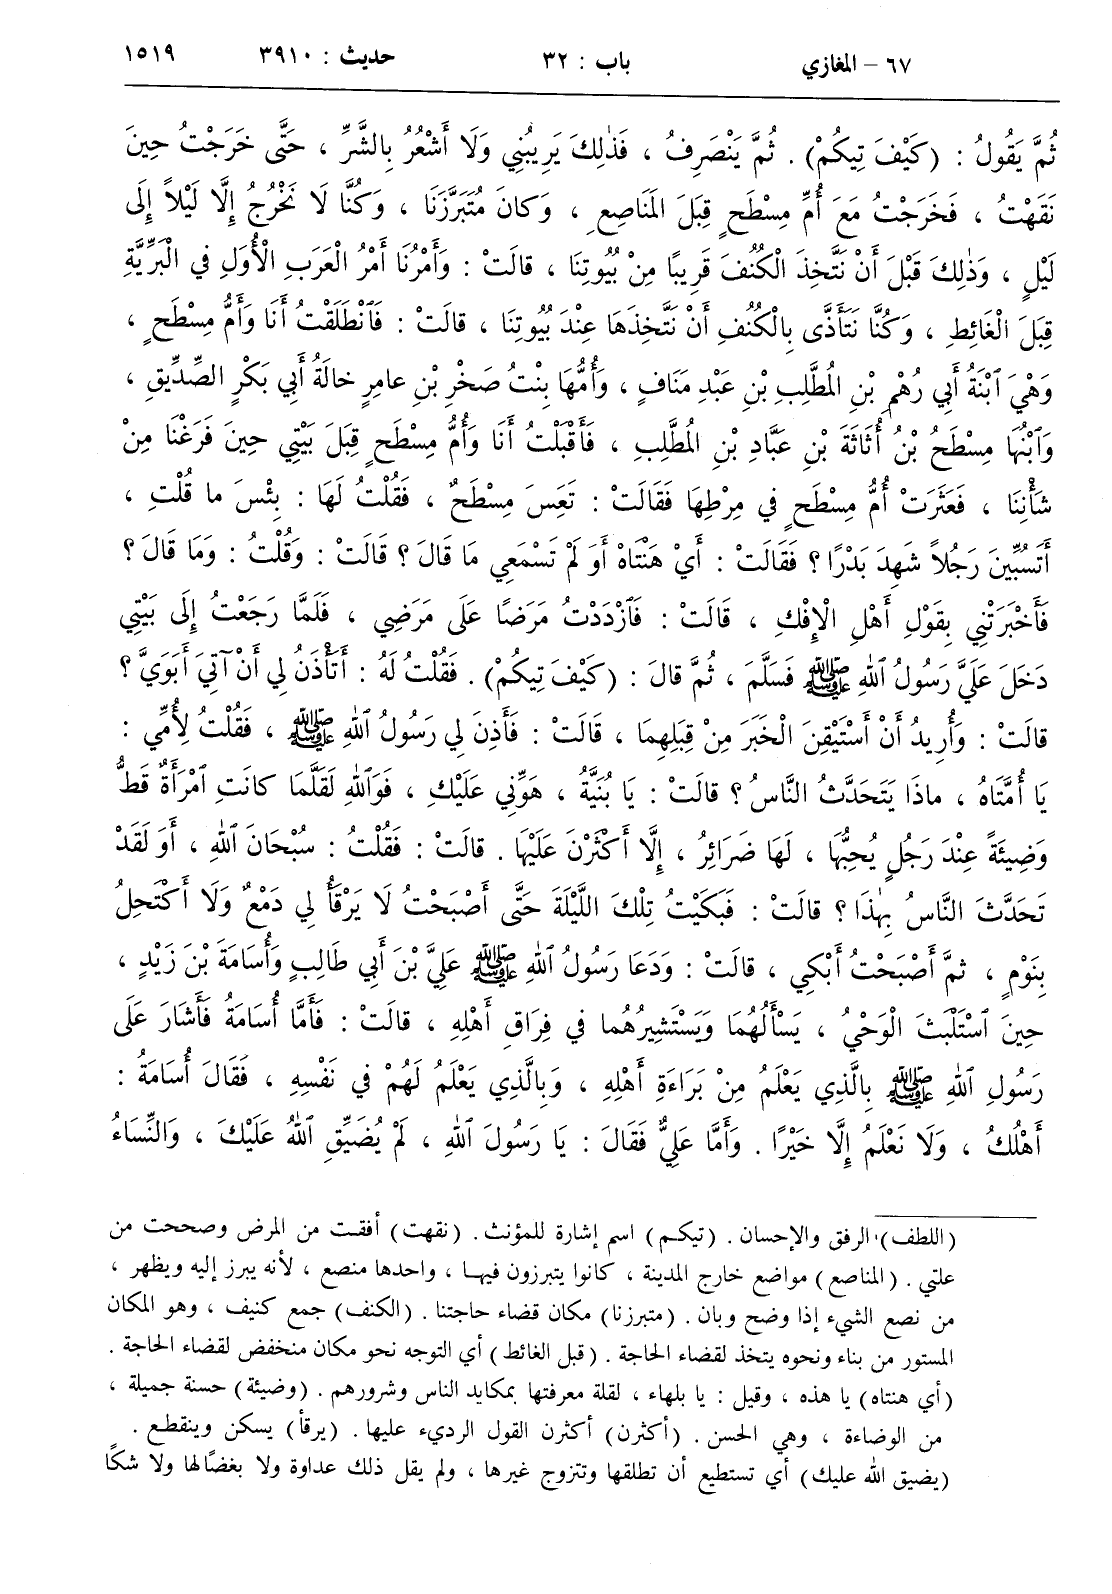 ٦٧ – المغازي باب : ٣٢ حديث : ٣٩١٠ ١٥١٩
ثُمَّ يَقُولُ : (كَيْفَ تِيكُمْ) . ثُمَّ يَنْصَرِفُ ، فَذٰلِكَ يَرِيبُنِي وَلَا أَشْعُرُ بِالشَّرِّ ، حَتَّى خَرَجْتُ حِينَ
نَقَهْتُ ، فَخَرَجْتُ مَعَ أُمِّ مِسْطَحٍ قِبَلَ المَنَاصِعِ ، وَكانَ مُتَبَرَّزَنَا ، وَكُنَّا لَا نَخْرُجُ إِلَّا لَيْلاً إِلَى
لَيْلٍ ، وَذٰلِكَ قَبْلَ أَنْ نَتَّخِذَ الْكُنُفَ قَرِيبًا مِنْ بُيُوتِنَا ، قالَتْ : وَأَمْرُنَا أَمْرُ الْعَرَبِ الْأُوَلِ في الْبَرِّيَّةِ
قِبَلَ الْغَائِطِ ، وَكُنَّا نَتَأَذَّى بِالْكُنُفِ أَنْ نَتَّخِذَهَا عِنْدَ بُيُوتِنَا ، قالَتْ : فَٱنْطَلَقْتُ أَنَا وَأُمُّ مِسْطَحٍ ،
وَهْيَ ٱبْنَةُ أَبِي رُهْمِ بْنِ المُطَّلِبِ بْنِ عَبْدِ مَنَافٍ ، وَأُمُّهَا بِنْتُ صَخْرِ بْنِ عامِرٍ خالَةُ أَبِي بَكْرٍ الصِّدِّيقِ ،
وَٱبْنُهَا مِسْطَحُ بْنُ أُثَاثَةَ بْنِ عَبَّادِ بْنِ المُطَّلِبِ ، فَأَقْبَلْتُ أَنَا وَأُمُّ مِسْطَحٍ قِبَلَ بَيْتِي حِينَ فَرَغْنَا مِنْ
شَأْنِنَا ، فَعَثَرَتْ أُمُّ مِسْطَحٍ في مِرْطِهَا فَقَالَتْ : تَعِسَ مِسْطَحٌ ، فَقُلْتُ لَهَا : بِئْسَ ما قُلْتِ ،
أَتَسُبِّينَ رَجُلاً شَهِدَ بَدْرًا ؟ فَقَالَتْ : أَيْ هَنْتَاهْ أَوَ لَمْ تَسْمَعِي مَا قالَ ؟ قالَتْ : وَقُلْتُ : وَمَا قالَ ؟
فَأَخْبَرَتْنِي بِقَوْلِ أَهْلِ الْإِفْكِ ، قَالَتْ : فَٱزْدَدْتُ مَرَضًا عَلَى مَرَضِي ، فَلَمَّا رَجَعْتُ إِلَى بَيْتِي
دَخَلَ عَلَيَّ رَسُولُ ٱللهِ ﷺ فَسَلَّمَ ، ثُمَّ قالَ : (كَيْفَ تِيكُمْ) . فَقُلْتُ لَهُ : أَتَأْذَنُ لِي أَنْ آتِيَ أَبَوَيَّ ؟
قالَتْ : وَأُرِيدُ أَنْ أَسْتَيْقِنَ الْخَبَرَ مِنْ قِبَلِهِمَا ، قَالَتْ : فَأَذِنَ لِي رَسُولُ ٱللهِ ﷺ ، فَقُلْتُ لِأُمِّي :
يَا أُمَّتَاهُ ، ماذَا يَتَحَدَّثُ النَّاسُ ؟ قالَتْ : يَا بُنَيَّةُ ، هَوِّنِي عَلَيْكِ ، فَوَٱللهِ لَقَلَّمَا كانَتِ ٱمْرَأَةٌ قَطُّ
وَضِيئَةً عِنْدَ رَجُلٍ يُحِبُّهَا ، لَهَا ضَرَائِرُ ، إِلَّا أَكْثَرْنَ عَلَيْهَا . قالَتْ : فَقُلْتُ : سُبْحَانَ ٱللهِ ، أَوَ لَقَدْ
تَحَدَّثَ النَّاسُ بِهٰذَا ؟ قالَتْ : فَبَكَيْتُ تِلْكَ اللَّيْلَةَ حَتَّى أَصْبَحْتُ لَا يَرْقَأُ لِي دَمْعٌ وَلَا أَكْتَحِلُ
بِنَوْمٍ ، ثمَّ أَصْبَحْتُ أَبْكِي ، قالَتْ : وَدَعَا رَسُولُ ٱللهِ ﷺ عَلِيَّ بْنَ أَبِي طَالِبٍ وَأُسَامَةَ بْنَ زَيْدٍ ،
حِينَ ٱسْتَلْبَثَ الْوَحْيُ ، يَسْأَلُهُمَا وَيَسْتَشِيرُهُما في فِرَاقِ أَهْلِهِ ، قالَتْ : فَأَمَّا أُسَامَةُ فَأَشَارَ عَلَى
رَسُولِ ٱللهِ ﷺ بِالَّذِي يَعْلَمُ مِنْ بَرَاءَةِ أَهْلِهِ ، وَبِالَّذِي يَعْلَمُ لَهُمْ في نَفْسِهِ ، فَقَالَ أُسَامَةُ :
أَهْلُكَ ، وَلَا نَعْلَمُ إِلَّا خَيْرًا . وَأَمَّا عَلِيٌّ فَقَالَ : يَا رَسُولَ ٱللهِ ، لَمْ يُضَيِّقِ ٱللهُ عَلَيْكَ ، وَالنِّسَاءُ
(اللطف) الرفق والإحسان . (تيكم) اسم إشارة للمؤنث . (نقهت) أفقت من المرض وصححت من
علتي . (المناصع) مواضع خارج المدينة ، كانوا يتبرزون فيها ، واحدها منصع ، لأنه يبرز إليه ويظهر ،
من نصع الشيء إذا وضح وبان . (متبرزنا) مكان قضاء حاجتنا . (الكنف) جمع كنيف ، وهو المكان
المستور من بناء ونحوه يتخذ لقضاء الحاجة . (قبل الغائط) أي التوجه نحو مكان منخفض لقضاء الحاجة .
(أي هنتاه) يا هذه ، وقيل : يا بلهاء ، لقلة معرفتها بمكايد الناس وشرورهم . (وضيئة) حسنة جميلة ،
من الوضاءة ، وهي الحسن . (أكثرن) أكثرن القول الرديء عليها . (يرقأ) يسكن وينقطع .
(يضيق الله عليك) أي تستطيع أن تطلقها وتتزوج غيرها ، ولم يقل ذلك عداوة ولا بغضًا لها ولا شكًا